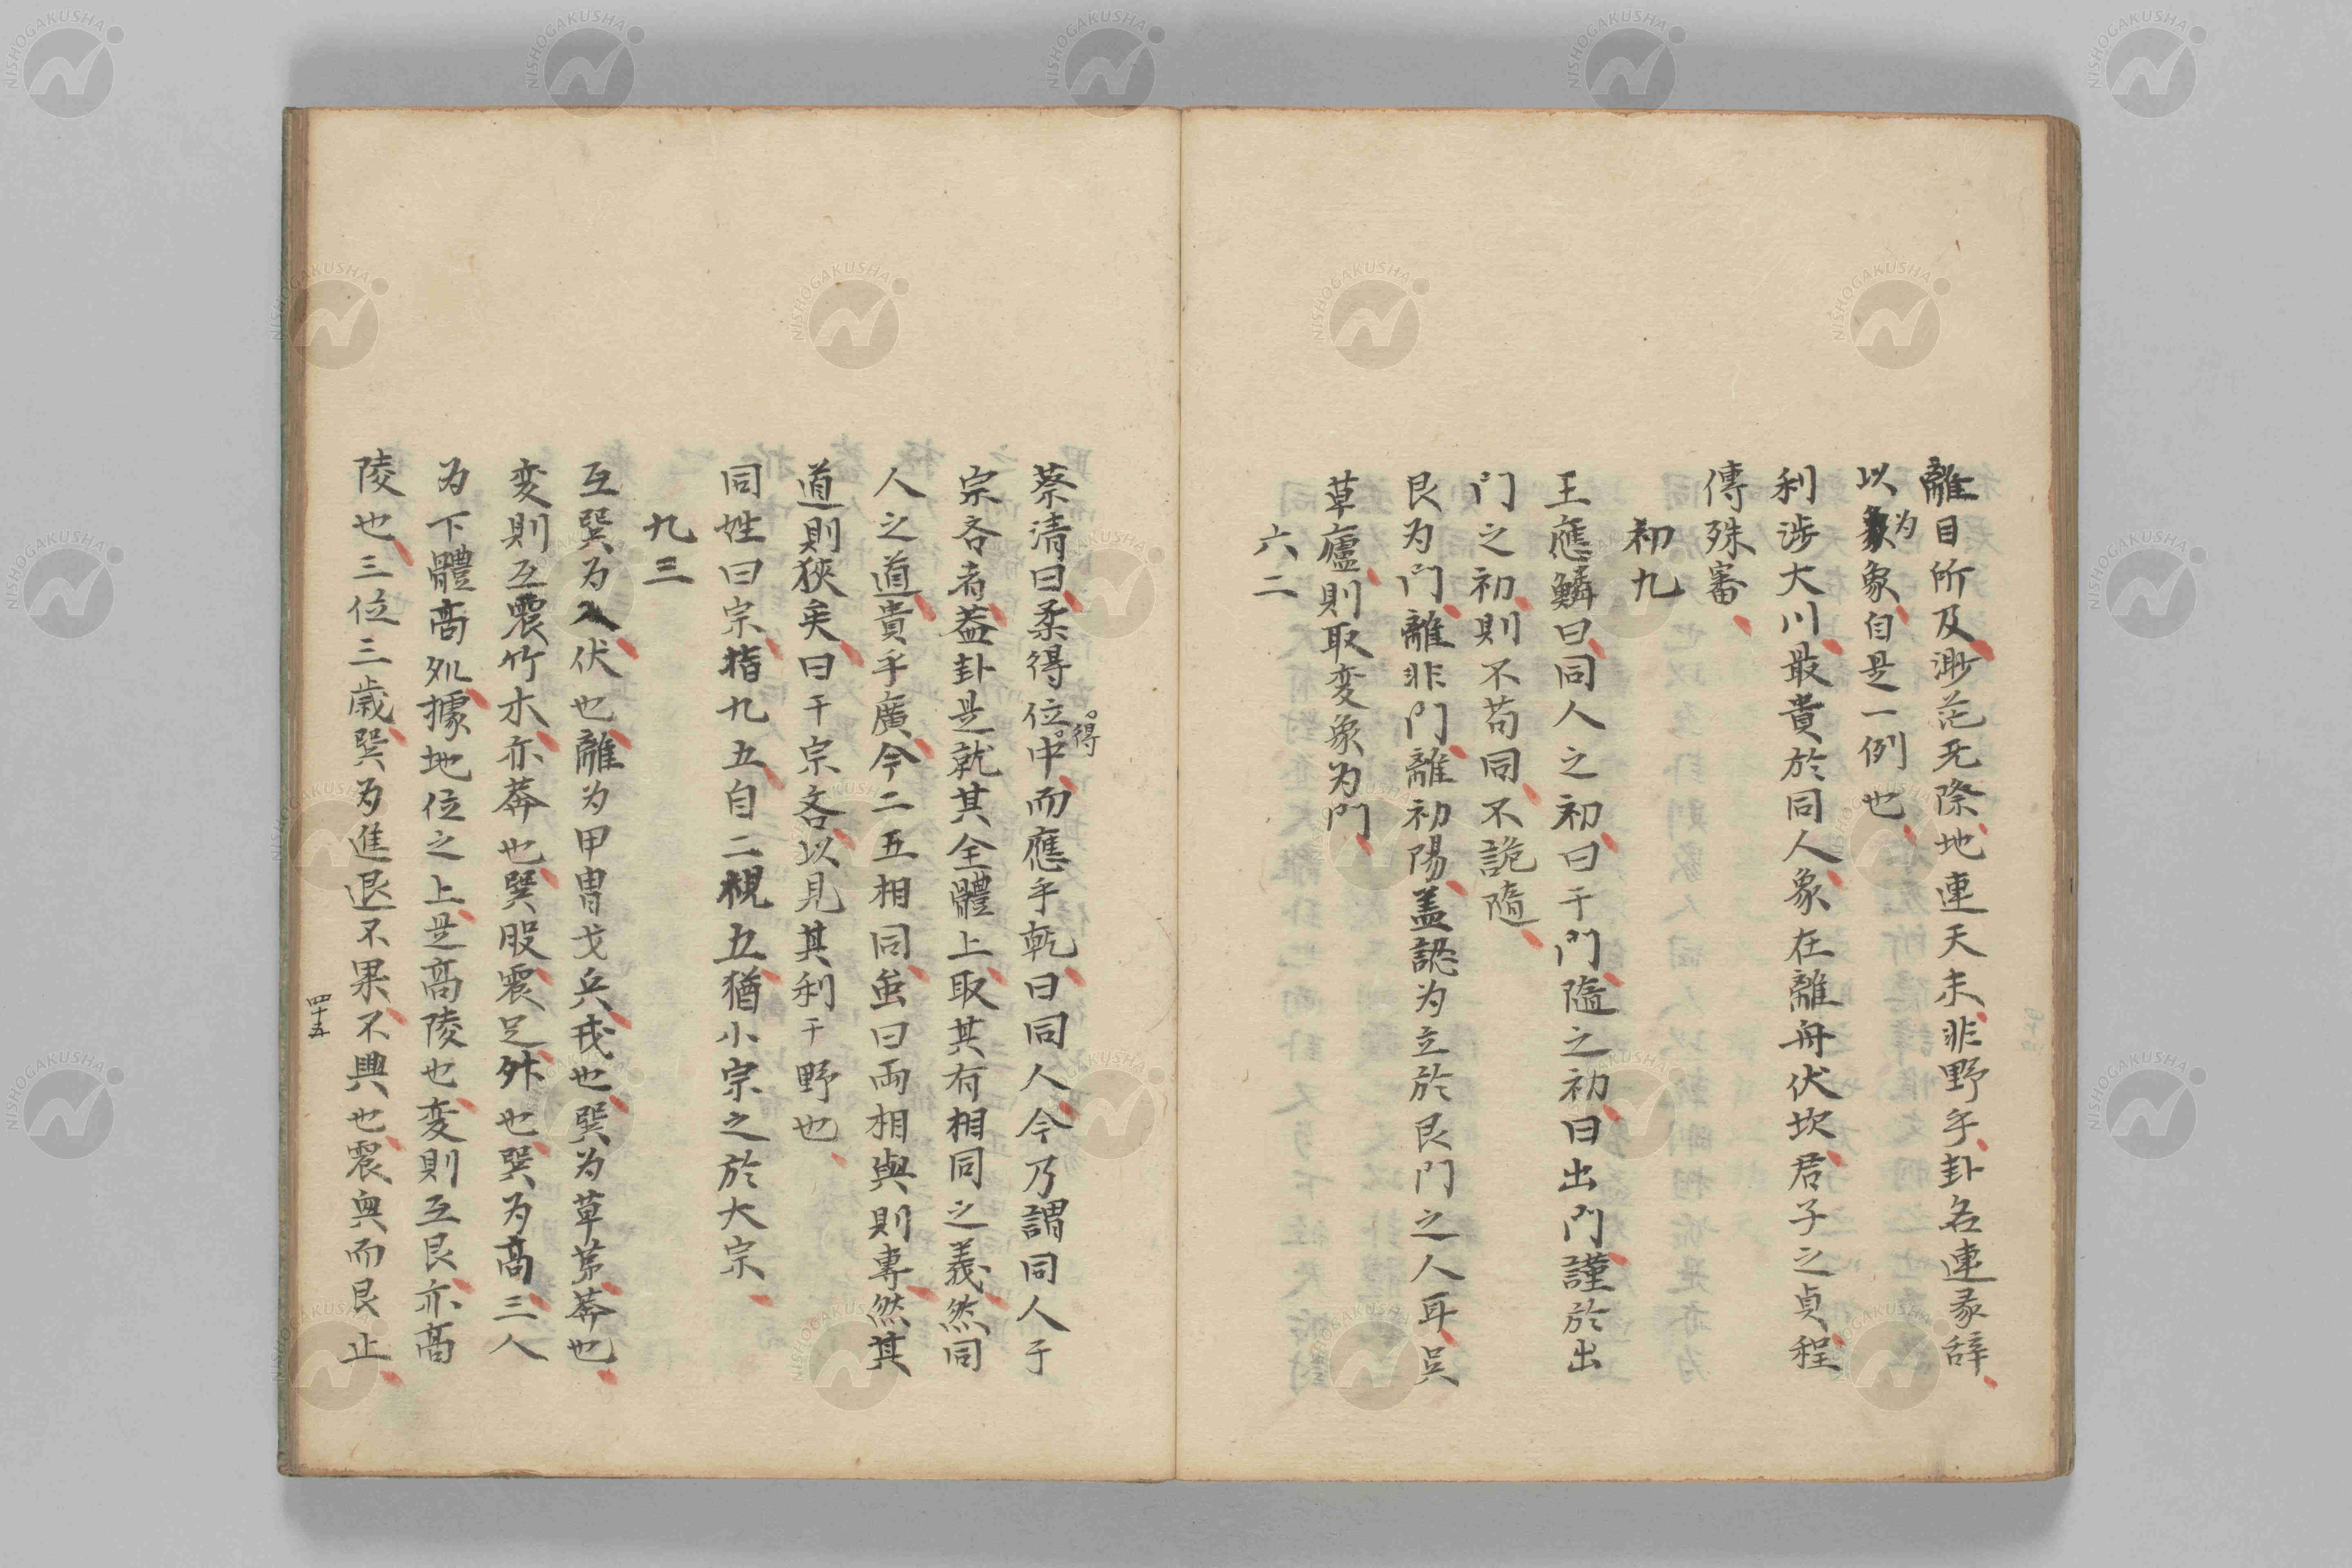 離目所及渺茫无際地連天末非野乎卦名連彖辞
以為象自是一例也
利涉大川最貴於同人象在離舟伏坎君子之貞程
傳殊審
初九
王應鱗曰同人之初曰于門隨之初曰出門謹於出
門之初則不苟同不詭隨
艮为门離非门離初陽蓋認为立於艮门之人耳吳
草廬則取変象为門
六二
蔡清曰柔得位得中而應乎乾曰同人今乃謂同人于
宗吝者蓋卦是就其全體上取其有相同之義然同
人之道貴乎廣今二五相同虽曰両相與則專然其
道則狹矣曰于宗吝以見其利于野也
同姓曰宗指九五自二視五猶小宗之於大宗
九三
互巽为入伏也離为甲胄戈兵戎也巽为草茅莽也
変則互震竹木亦莽也巽股震足舛也巽为髙三人
为下體髙処據地位之上是髙陵也変則互艮亦髙
陵也三位三歳巽为進退不果不興也震興而艮止
四十五
NISHOGAKUSHA